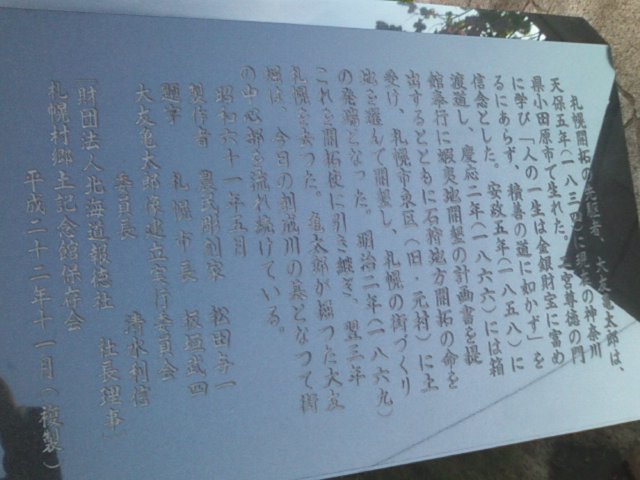 札幌開拓の先駆者、大友亀太郎は、
天保五年(一八三四)に現在の神奈川
県小田原市で生れた。二宮尊徳の門
に学び「人の一生は金銀財宝に富め
るにあらず、積善の道に如かず」を
信念とした。安政五年(一八五八)に
渡道し、慶応二年(一八六六)には箱
館奉行に蝦夷地開墾の計画書を提
出するとともに石狩地方開拓の命を
受け、札幌市東区(旧・元村)に土
地を選んで開墾し、札幌の街づくり
の発端となった。明治二年(一八六九)
これを開拓使に引き継ぎ、翌三年
札幌を去った。亀太郎が掘った大友
堀は、今日の創成川の基となって街
の中心部を流れ続けている。
昭和六十一年五月
製作者 農民彫刻家 松田与一
題字 札幌市長 板垣武四
大友亀太郎像建立実行委員会
委員長 清水利信
「財団法人北海道報徳社 社長理事」
札幌村郷土記念館保存会
平成二十二年十一月(複製)